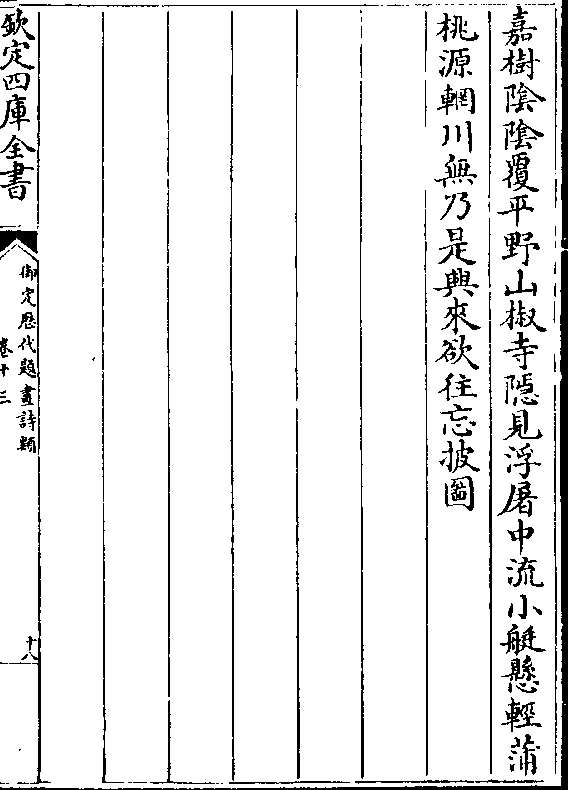 嘉樹陰陰覆平野山椒寺隱見浮屠中流小艇懸輕蒲
桃源輞川無乃是興來欲往忘披圖
欽定四庫全書
御定歷代題畫詩類
卷十三
十八